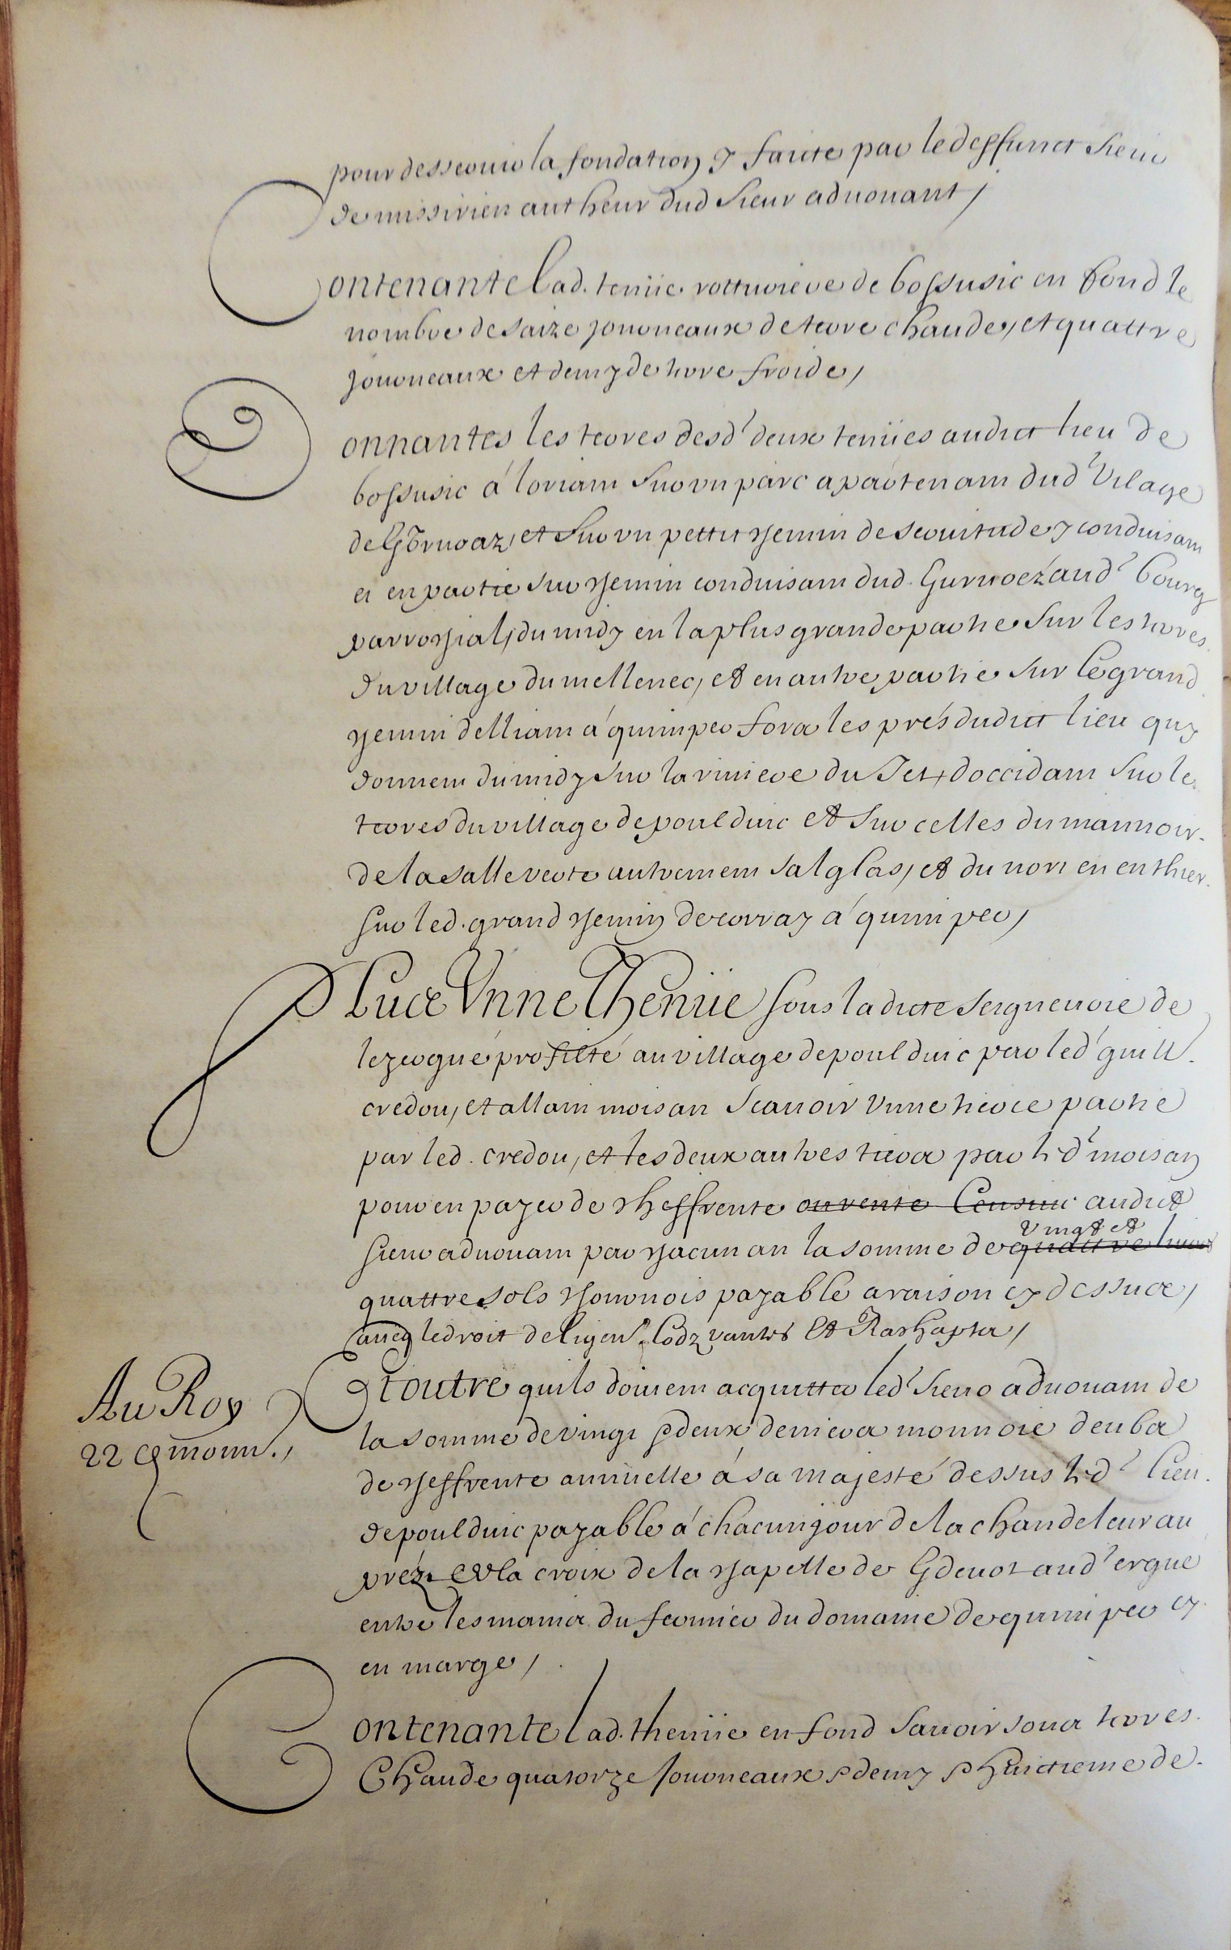 pour desservir la fondation y faicte par le deffunct sieur
de missirien autheur dud sieur advouant /
Contenante lad. tenüe rotturiere de bossusic en fond le
nombre de saize journeaux de terre chaude, et quattre
journeaux et demy de terre froide /
Donnantes les terres desd. deux tenües audict lieu de
bossusic á l'oriam sur un parc apartenam dud. vilage
de et sur un pettit chemin de servitude y conduisam
et en partie sur chemin conduisam dud. Gurvoéz aud. bourg
parrochial, du midy en la plus grande partie sur les terres
du village du mellenec, et en autre partie sur le grand
chemin delliam á quimper fors les prés dudict lieu quy
donnem du midy sur la riviere du Jet, d'occidam sur le
terres du village de poulduic et sur celles du mannoir
de la salle verte autremem salglas, et du nort en enthier
sur led. grand chemin de corray á quimper /
Pluce Vnne Thenüe sous la dicte seigneurie de
lezergué profitté au village de poulduic par led. guill.
credou, et allain moisan scavoir vnne tierce partie
par led. credou, et les deux autres tiers par led. moisan
pour en payer de cheffrente ou rente Censive audict
sieur advouam par chacun an la somme de quattre livres
vingt et
quattre sols tournois payable a raison cy dessus,
avecq le droit de ligence, lodz vantes et Rachapts /
Et outre quils doivem acquitter led. sieur advouam de
la somme de vingt & deux deniers monnoie deubs
de cheffrente annuelle á sa majesté dessus led. lieu
de poulduic payable á chacun jour de la chandeleur au
préz la croix de la chapelle de aud. ergue
entre les mains du fermier du domaine de quimper cy
en marge /
Au Roy
22 monn. /
Contenante lad. thenüe en fond savoir sous terres
Chaude quatorze journeaux & demy & huictieme de